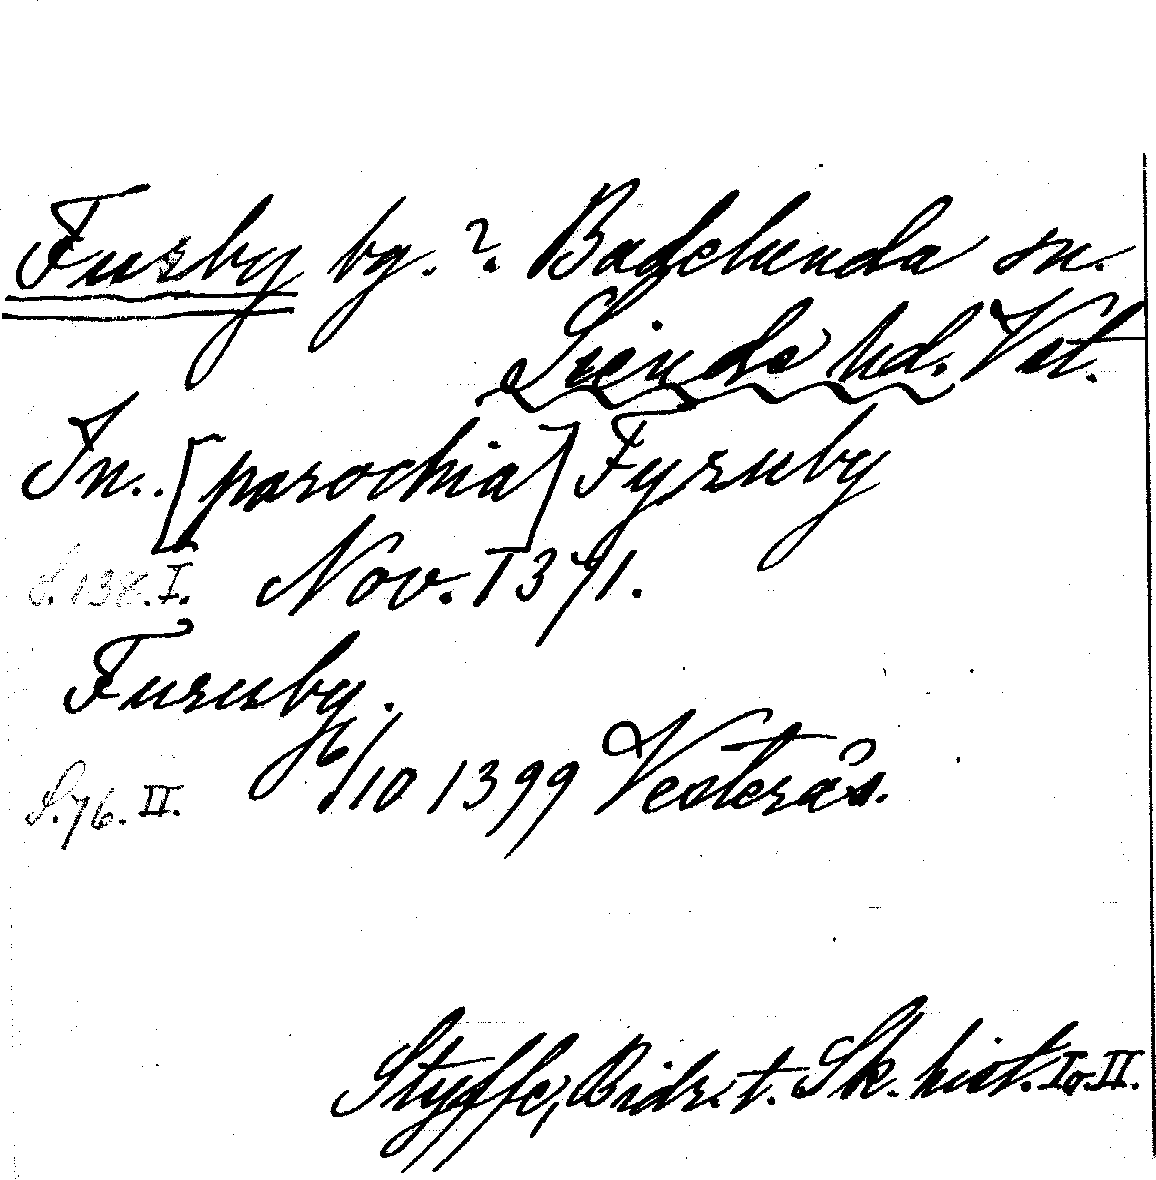 Fursby bg. ? Badelunda sn.
Siende hd. Vstl.
In.. [parochia] Fyruby
S. 138. I. Nov. 1371.
Furuby.
S. 76. II. 6/10 1399 Vesterås.
Styffe, Bidr. t. Sk. hist. I o. II.